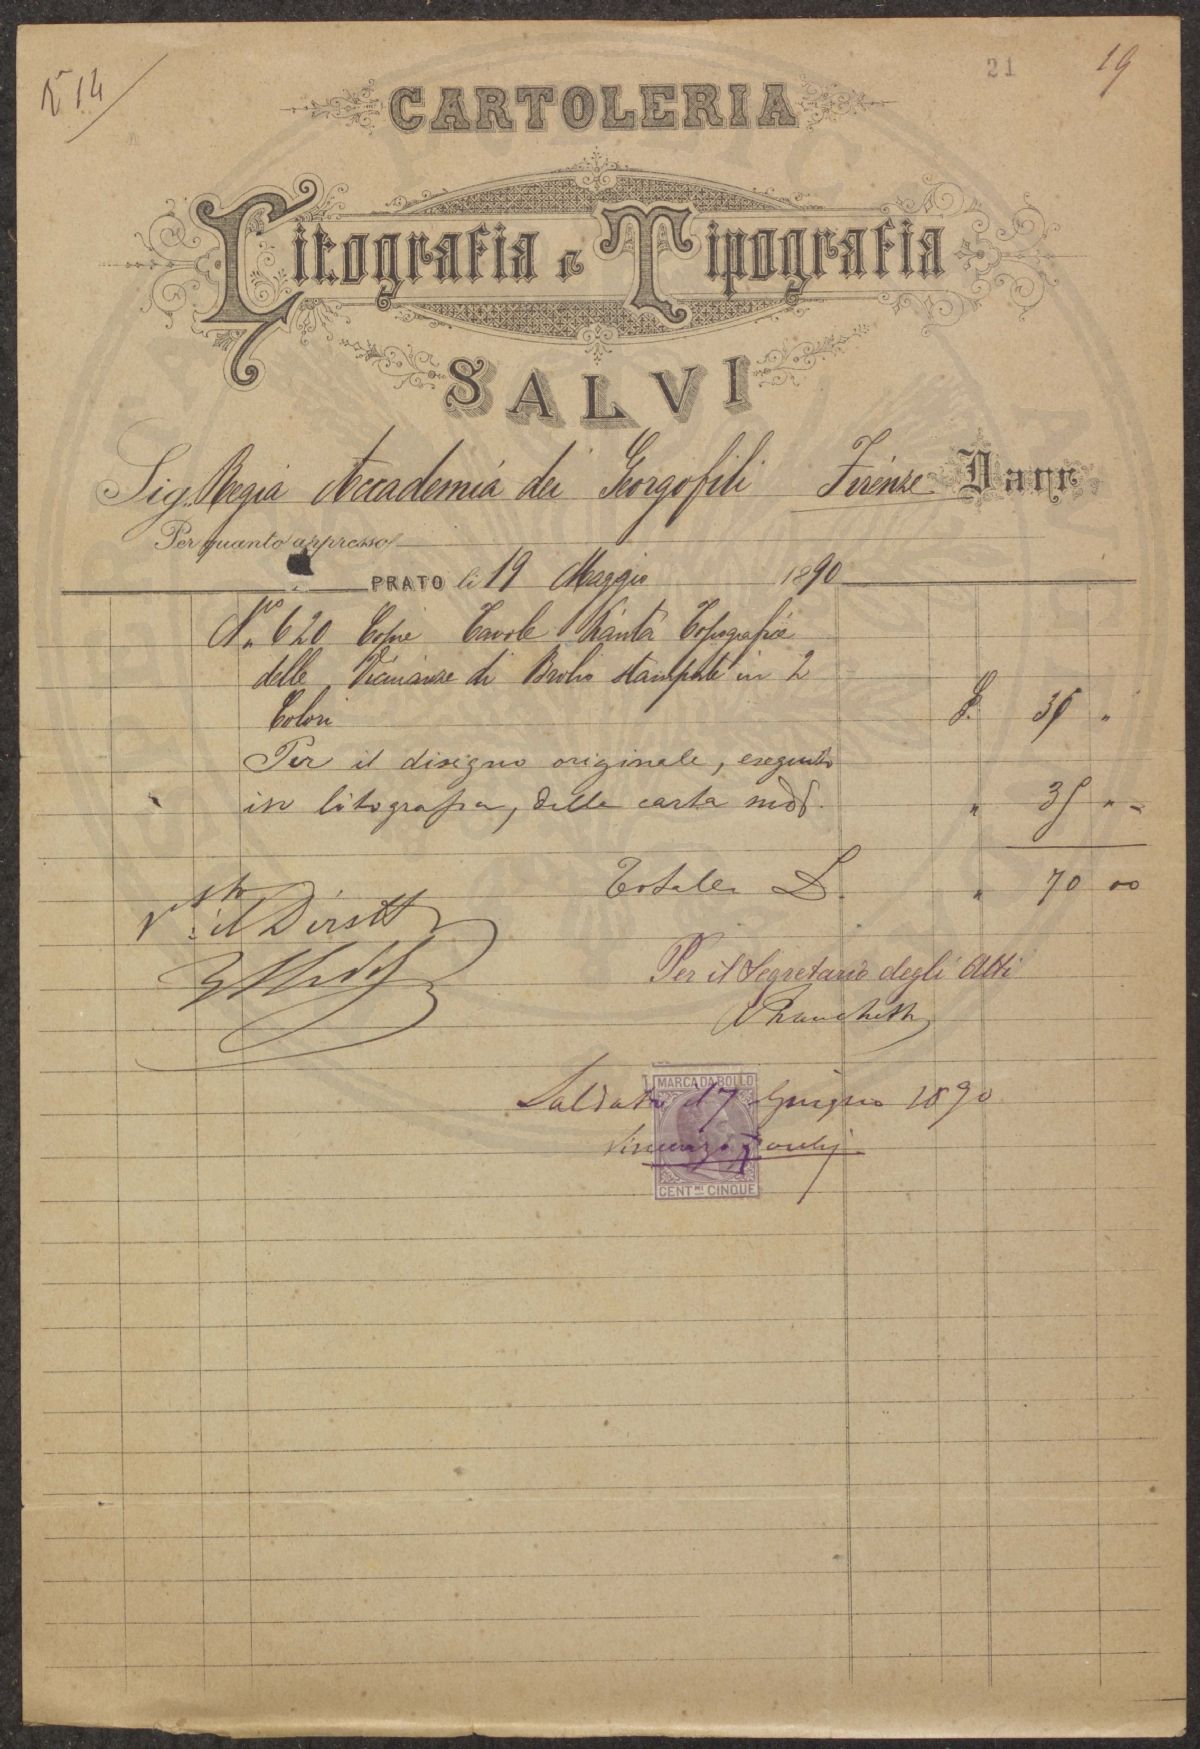 N° 14
21
19
CARTOLERIA
Litografia e Tipografia
SALVI
Sig. Regia Accademia dei Georgofili Firenze Dare
Per quanto appresso
PRATO li 19 Maggio 1890
N.° 620 Copie Tavole Pianta Topografica
delle Vicinanze di Brolio stampate in 2
Colori L. 35 "
Per il disegno originale, eseguito
in litografia, della carta sudd. " 35 " -
Totale L. " 70 00
Vsto: il Dirett
Per il Segretario degli Atti
MARCA DA BOLLO
Saldato il 7 Giugno 1890
Vincenzo
CENTMI CINQUE